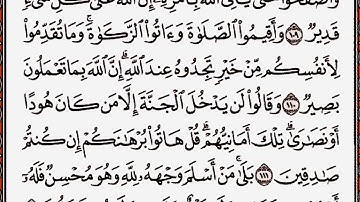 وَاصْفَحُوا۟ حَتَّىٰ يَأْتِىَ ٱللَّهُ بِأَمْرِهِۦٓ إِنَّ ٱللَّهَ عَلَىٰ كُلِّ شَىْءٍ
قَدِيرٌ ١٠٩ وَأَقِيمُوا۟ ٱلصَّلَوٰةَ وَءَاتُوا۟ ٱلزَّكَوٰةَ ۚ وَمَا تُقَدِّمُوا۟
لِأَنفُسِكُم مِّنْ خَيْرٍ تَجِدُوهُ عِندَ ٱللَّهِ ۗ إِنَّ ٱللَّهَ بِمَا تَعْمَلُونَ
بَصِيرٌ ١١٠ وَقَالُوا۟ لَن يَدْخُلَ ٱلْجَنَّةَ إِلَّا مَن كَانَ هُودًا
أَوْ نَصَـٰرَىٰ ۗ تِلْكَ أَمَانِيُّهُمْ ۗ قُلْ هَاتُوا۟ بُرْهَـٰنَكُمْ إِن كُنتُمْ
صَـٰدِقِينَ ١١١ بَلَىٰ مَنْ أَسْلَمَ وَجْهَهُۥ لِلَّهِ وَهُوَ مُحْسِنٌ فَلَهُۥٓ